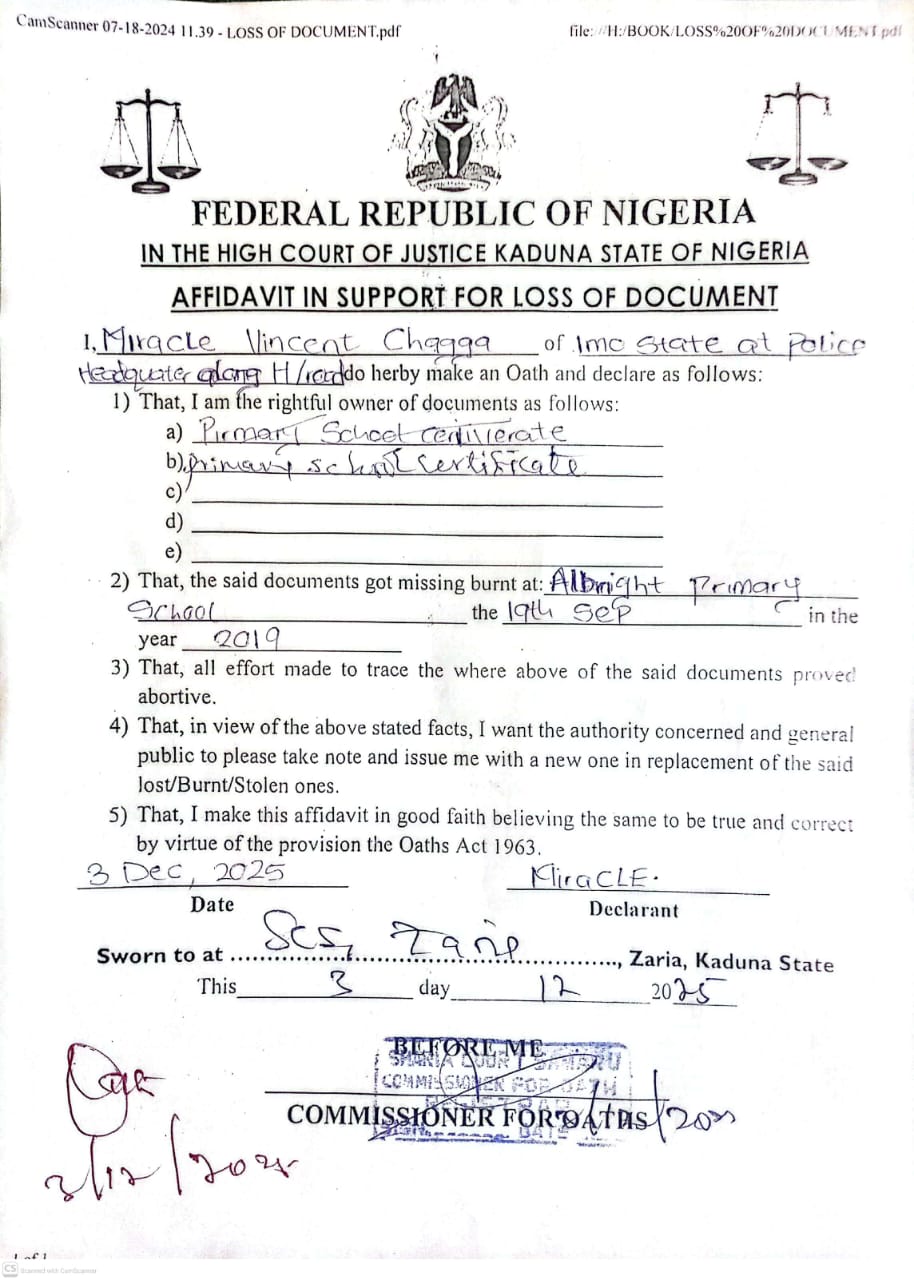 CamScanner 07-18-2024 11.39 - LOSS OF DOCUMENT.pdf
file:///H:/BOOK/LOSS%20OF%20DOCUMENT.pdf
FEDERAL REPUBLIC OF NIGERIA
IN THE HIGH COURT OF JUSTICE KADUNA STATE OF NIGERIA
AFFIDAVIT IN SUPPORT FOR LOSS OF DOCUMENT
1, Miracle Vincent Chgaga of Imo State at Police
Headquater along H/road do herby make an Oath and declare as follows:
1) That, I am the rightful owner of documents as follows:
a) Pirmary School
b) primary school certificate
c)
d)
e)
2) That, the said documents got missing burnt at: Albright Primary
School the 19th Sep in the
year 2019
3) That, all effort made to trace the where above of the said documents proved
abortive.
4) That, in view of the above stated facts, I want the authority concerned and general
public to please take note and issue me with a new one in replacement of the said
lost/Burnt/Stolen ones.
5) That, I make this affidavit in good faith believing the same to be true and correct
by virtue of the provision the Oaths Act 1963.
3 Dec, 2025 MiraCLE.
Date Declarant
Sworn to at SCS, , Zaria, Kaduna State
This 3 day 12 2025
BEFORE ME
SHARIA COURT SAMARU
COMMISSIONER FOR OATH
REGISTRAR
COMMISSIONER FOR OATHS
DATE
3/12/2025
1 of 1
CS Scanned with CamScanner